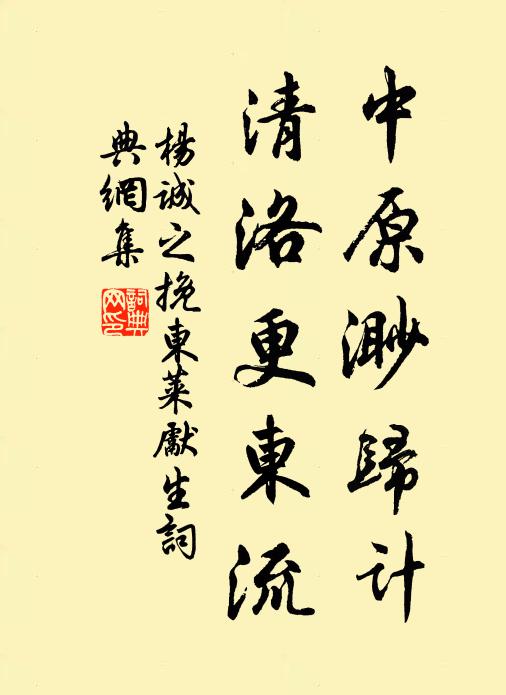 中原渺歸計
清洛更東流
楊誠之挽東萊獻生詞
典網集
詞典
网印